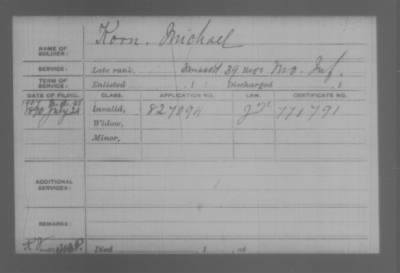 Koon. Michael
NAME OF SOLDIER:
SERVICE: Late rank, 39 Regt Mo. Inf.
TERM OF SERVICE: Enlisted , 1 Discharged , 1
DATE OF FILING. CLASS. APPLICATION NO. LAW. CERTIFICATE NO.
1890 July 24 Invalid, 827094 771791
Widow,
Minor,
ADDITIONAL SERVICES:
REMARKS:
Died , 1 , at